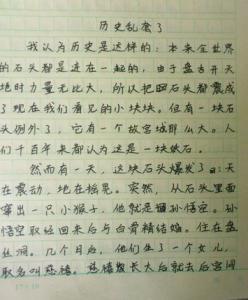 历史乱套了
我认为历史是这样的：本来全世界
的石头都是连在一起的，由于盘古开天
地时力量无比大，所以把图石头都震成
了现在我们看见的小块块。但有一块石
头例外了，它有一个故宫城那么大。人
们千百年来都认为这是一块铁石。
然而有一天，这块石头爆发了：天
在震动，地在摇晃。突然，从石头里面
窜出一只小猴子，他就是孙悟空。孙
悟空取经回来后与白骨精结婚。住在盘
丝洞。几个月后，他们生了一个女儿，
取名叫慈禧。慈禧长大后就去后宫闹